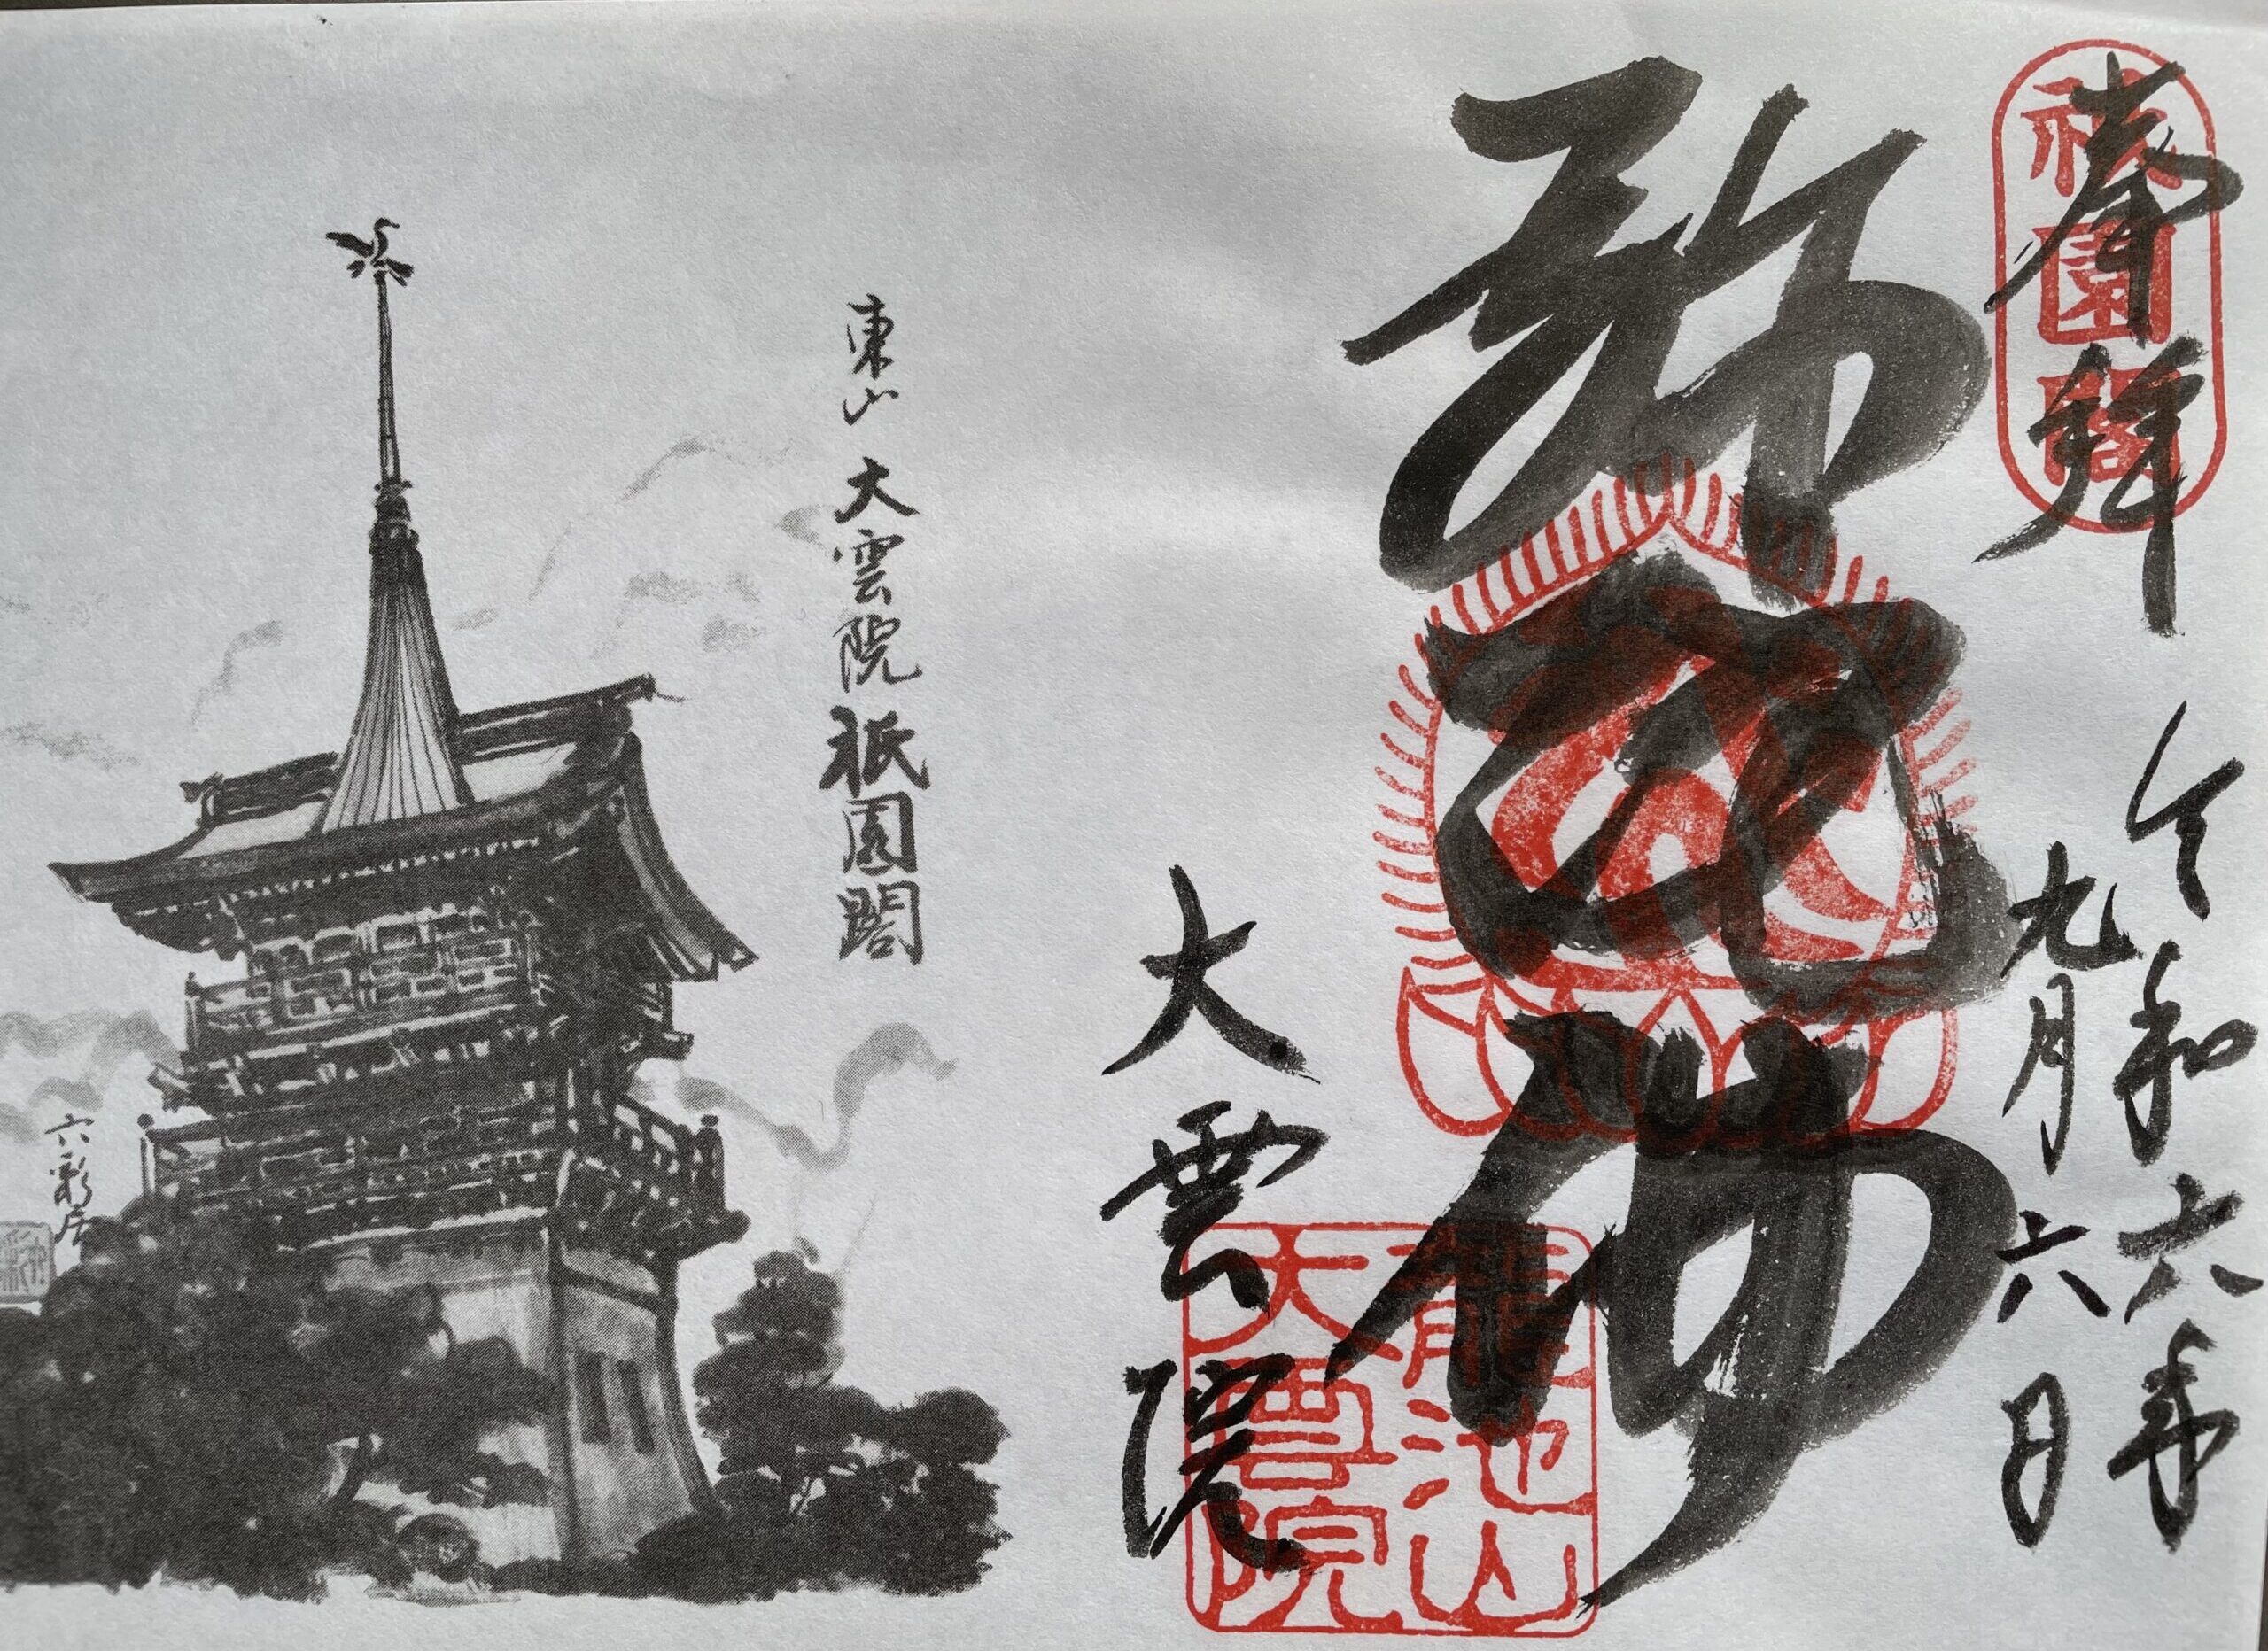 奉拝
祇園閣
令和六年
九月六日
弥陀佛
大雲院
龍池山
大雲院
東山 大雲院 祇園閣
六彩居